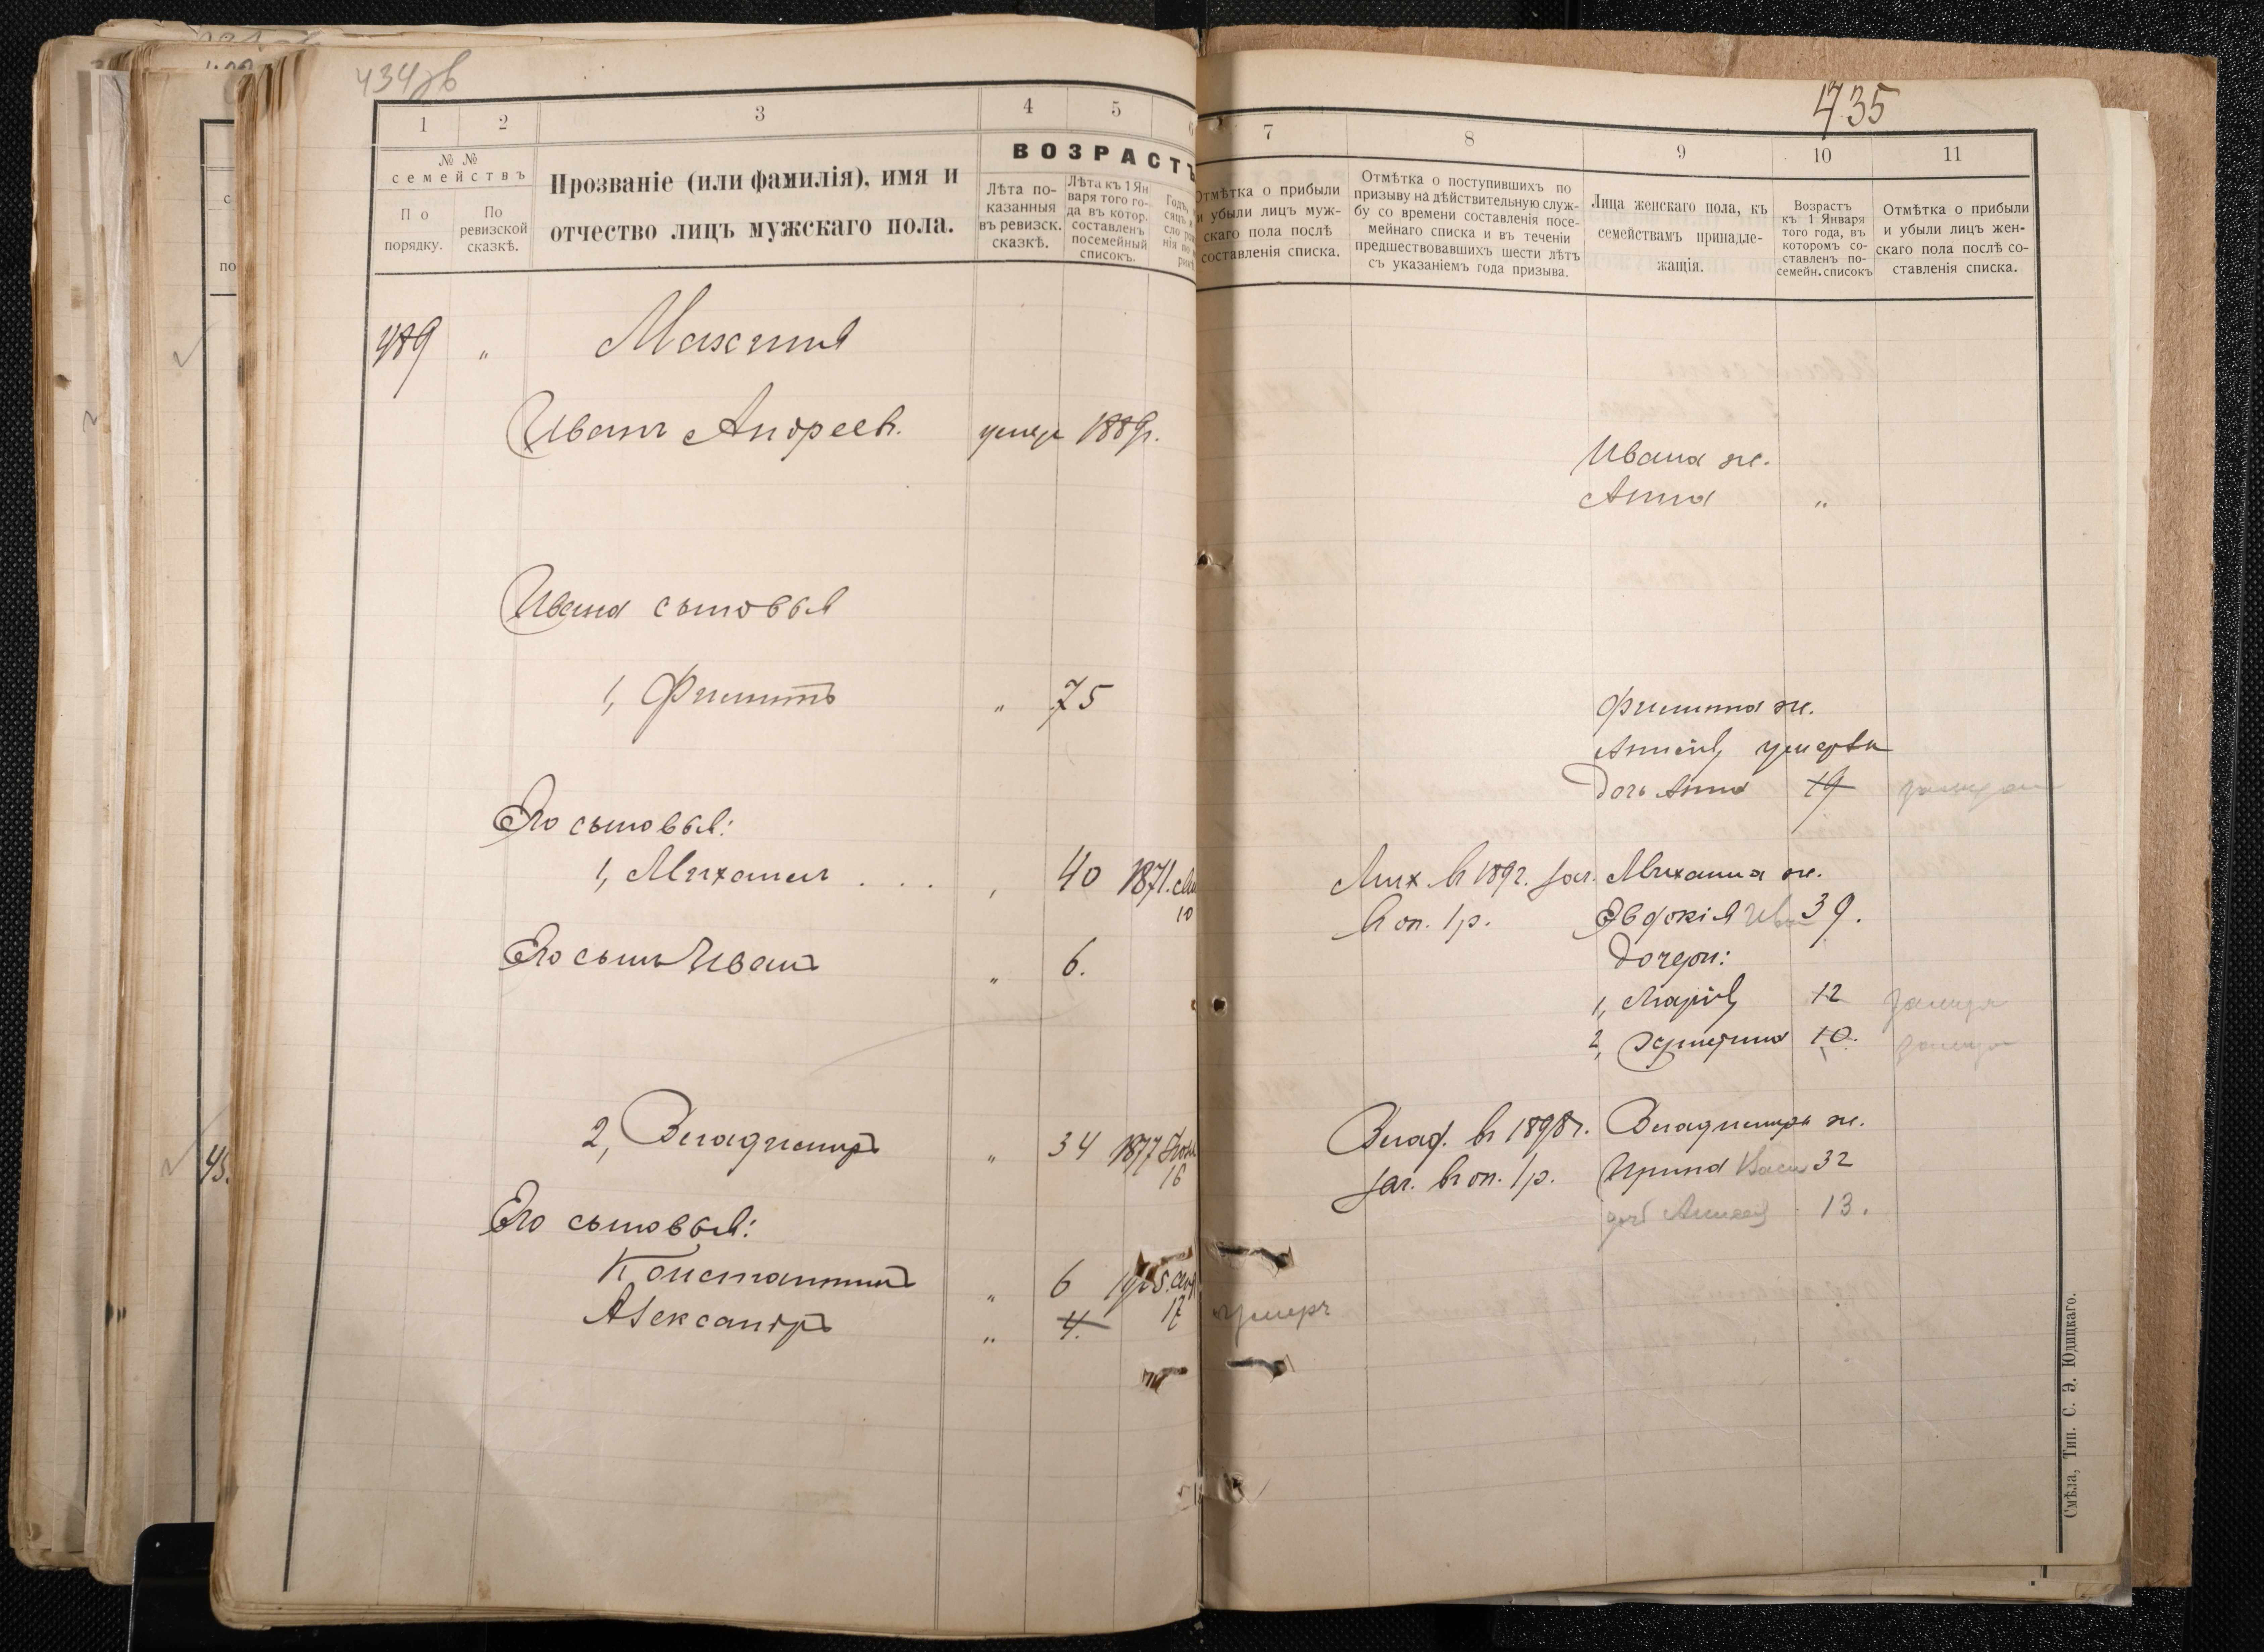 434зв
1 2 3 4 5 6
№ № семействъ
По порядку.
По ревизской сказкѣ.
Прозваніе (или фамилія), имя и отчество лицъ мужскаго пола.
ВОЗРАСТЪ
Лѣта показанныя въ ревизск. сказкѣ.
Лѣта къ 1 Января того года въ котор. составленъ посемейный списокъ.
489 "
Иванъ Андреев. умеръ 1889г.
Ивана сыновья
1, Филиппъ " 75
Его сыновья:
1, Михаилъ . . . " 40 1871.
10
Его сынъ Иванъ " 6.
2, Владиміръ " 34 1877
16
Его сыновья:
Константинъ " 6 1905.
17
Александръ " 4.
435
7 8 9 10 11
Отмѣтка о прибыли и убыли лицъ мужскаго пола послѣ составленія списка.
Отмѣтка о поступившихъ по призыву на дѣйствительную службу со времени составленія посемейнаго списка и въ теченіи предшествовавшихъ шести лѣтъ съ указаніемъ года призыва.
Лица женскаго пола, къ семействамъ принадлежащія.
Возрастъ къ 1 Января того года, въ которомъ составленъ посемейн. списокъ
Отмѣтка о прибыли и убыли лицъ женскаго пола послѣ составленія списка.
Ивана ж.
Анна "
Филиппа ж.
умерла
дочь Анна 19 замужем
Мих. въ 1892. зач. Михаила ж.
въ оп. 1р. Евдокія Ив 39.
дочери:
1, Марія 12 замуж
2, 10. замуж
Влад. въ 1898г. Владиміра ж.
зач. въ оп. 1р. Ирина Васи 32
дочь 13.
умеръ
Смѣла, Тип. С. Э. Юдицкаго.